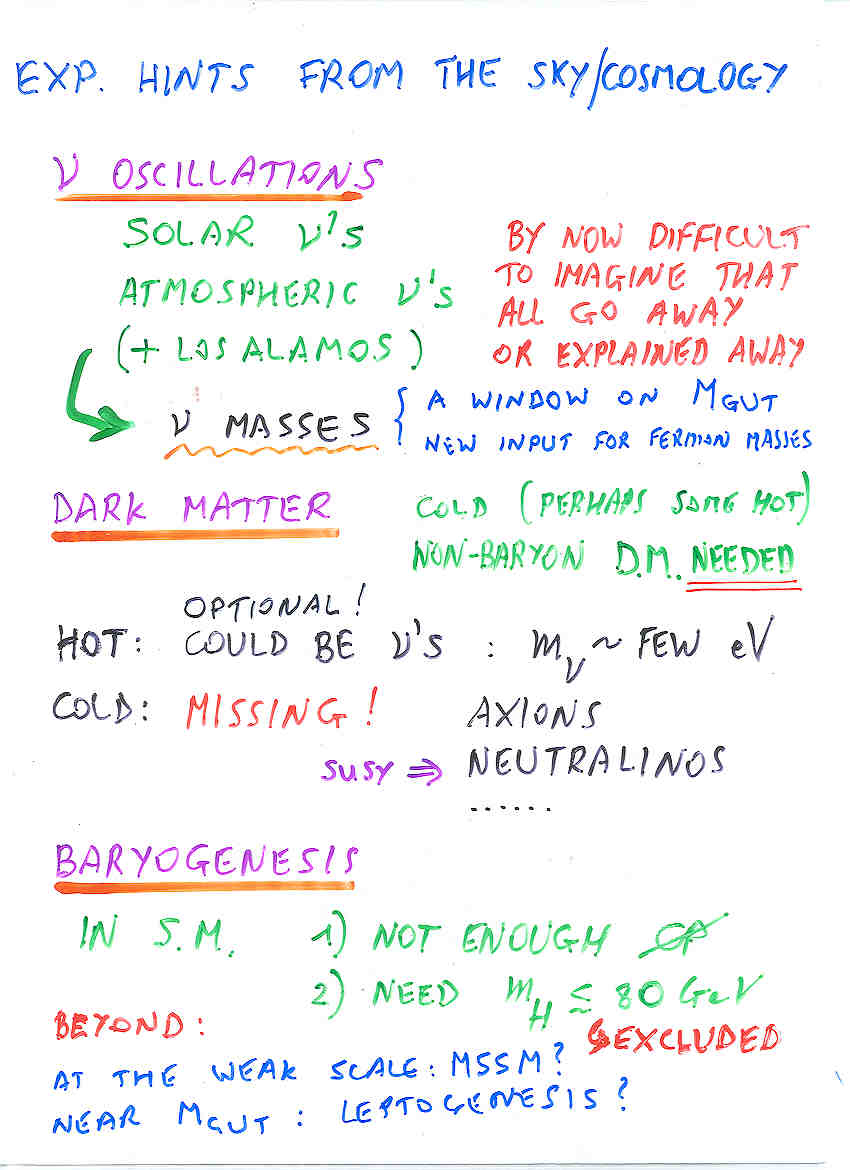 EXP. HINTS FROM THE SKY/COSMOLOGY
ν OSCILLATIONS
SOLAR ν's
ATMOSPHERIC ν's
(+ LOS ALAMOS)
BY NOW DIFFICULT
TO IMAGINE THAT
ALL GO AWAY
OR EXPLAINED AWAY
ν MASSES { A WINDOW ON M_GUT
NEW INPUT FOR FERMION MASSES
DARK MATTER
COLD (PERHAPS SOME HOT)
NON-BARYON D.M. NEEDED
OPTIONAL!
HOT: COULD BE ν's : m_ν ~ FEW eV
COLD: MISSING! AXIONS
SUSY ⇒ NEUTRALINOS
......
BARYOGENESIS
IN S.M. 1) NOT ENOUGH C̸P̸
2) NEED m_H ≲ 80 GeV
↳EXCLUDED
BEYOND:
AT THE WEAK SCALE: MSSM?
NEAR M_GUT : LEPTOGENESIS?